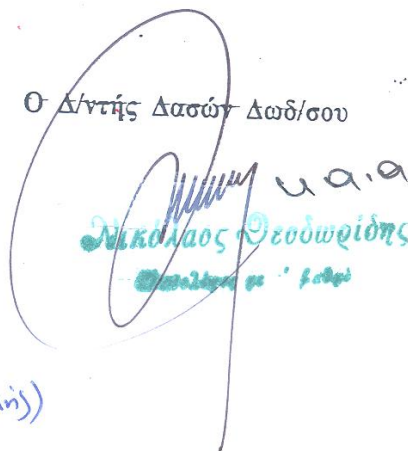 Ο Δ/ντής Δασών Δωδ/σου
κ.α.α
Νικόλαος Θεοδωρίδης
με βαθμό